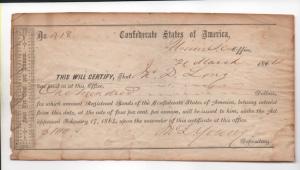 No 918 Confederate States of America,
Office,
20 March 1864
THIS WILL CERTIFY, That D Long
has paid in at this Office,
One hundred Dollars,
for which amount Registered Bonds of the Confederate States of America, bearing interest
from this date, at the rate of four per cent. per annum, will be issued to him, under the Act
approved February 17, 1864, upon the surrender of this certificate at this office.
$ 100
Depositary.